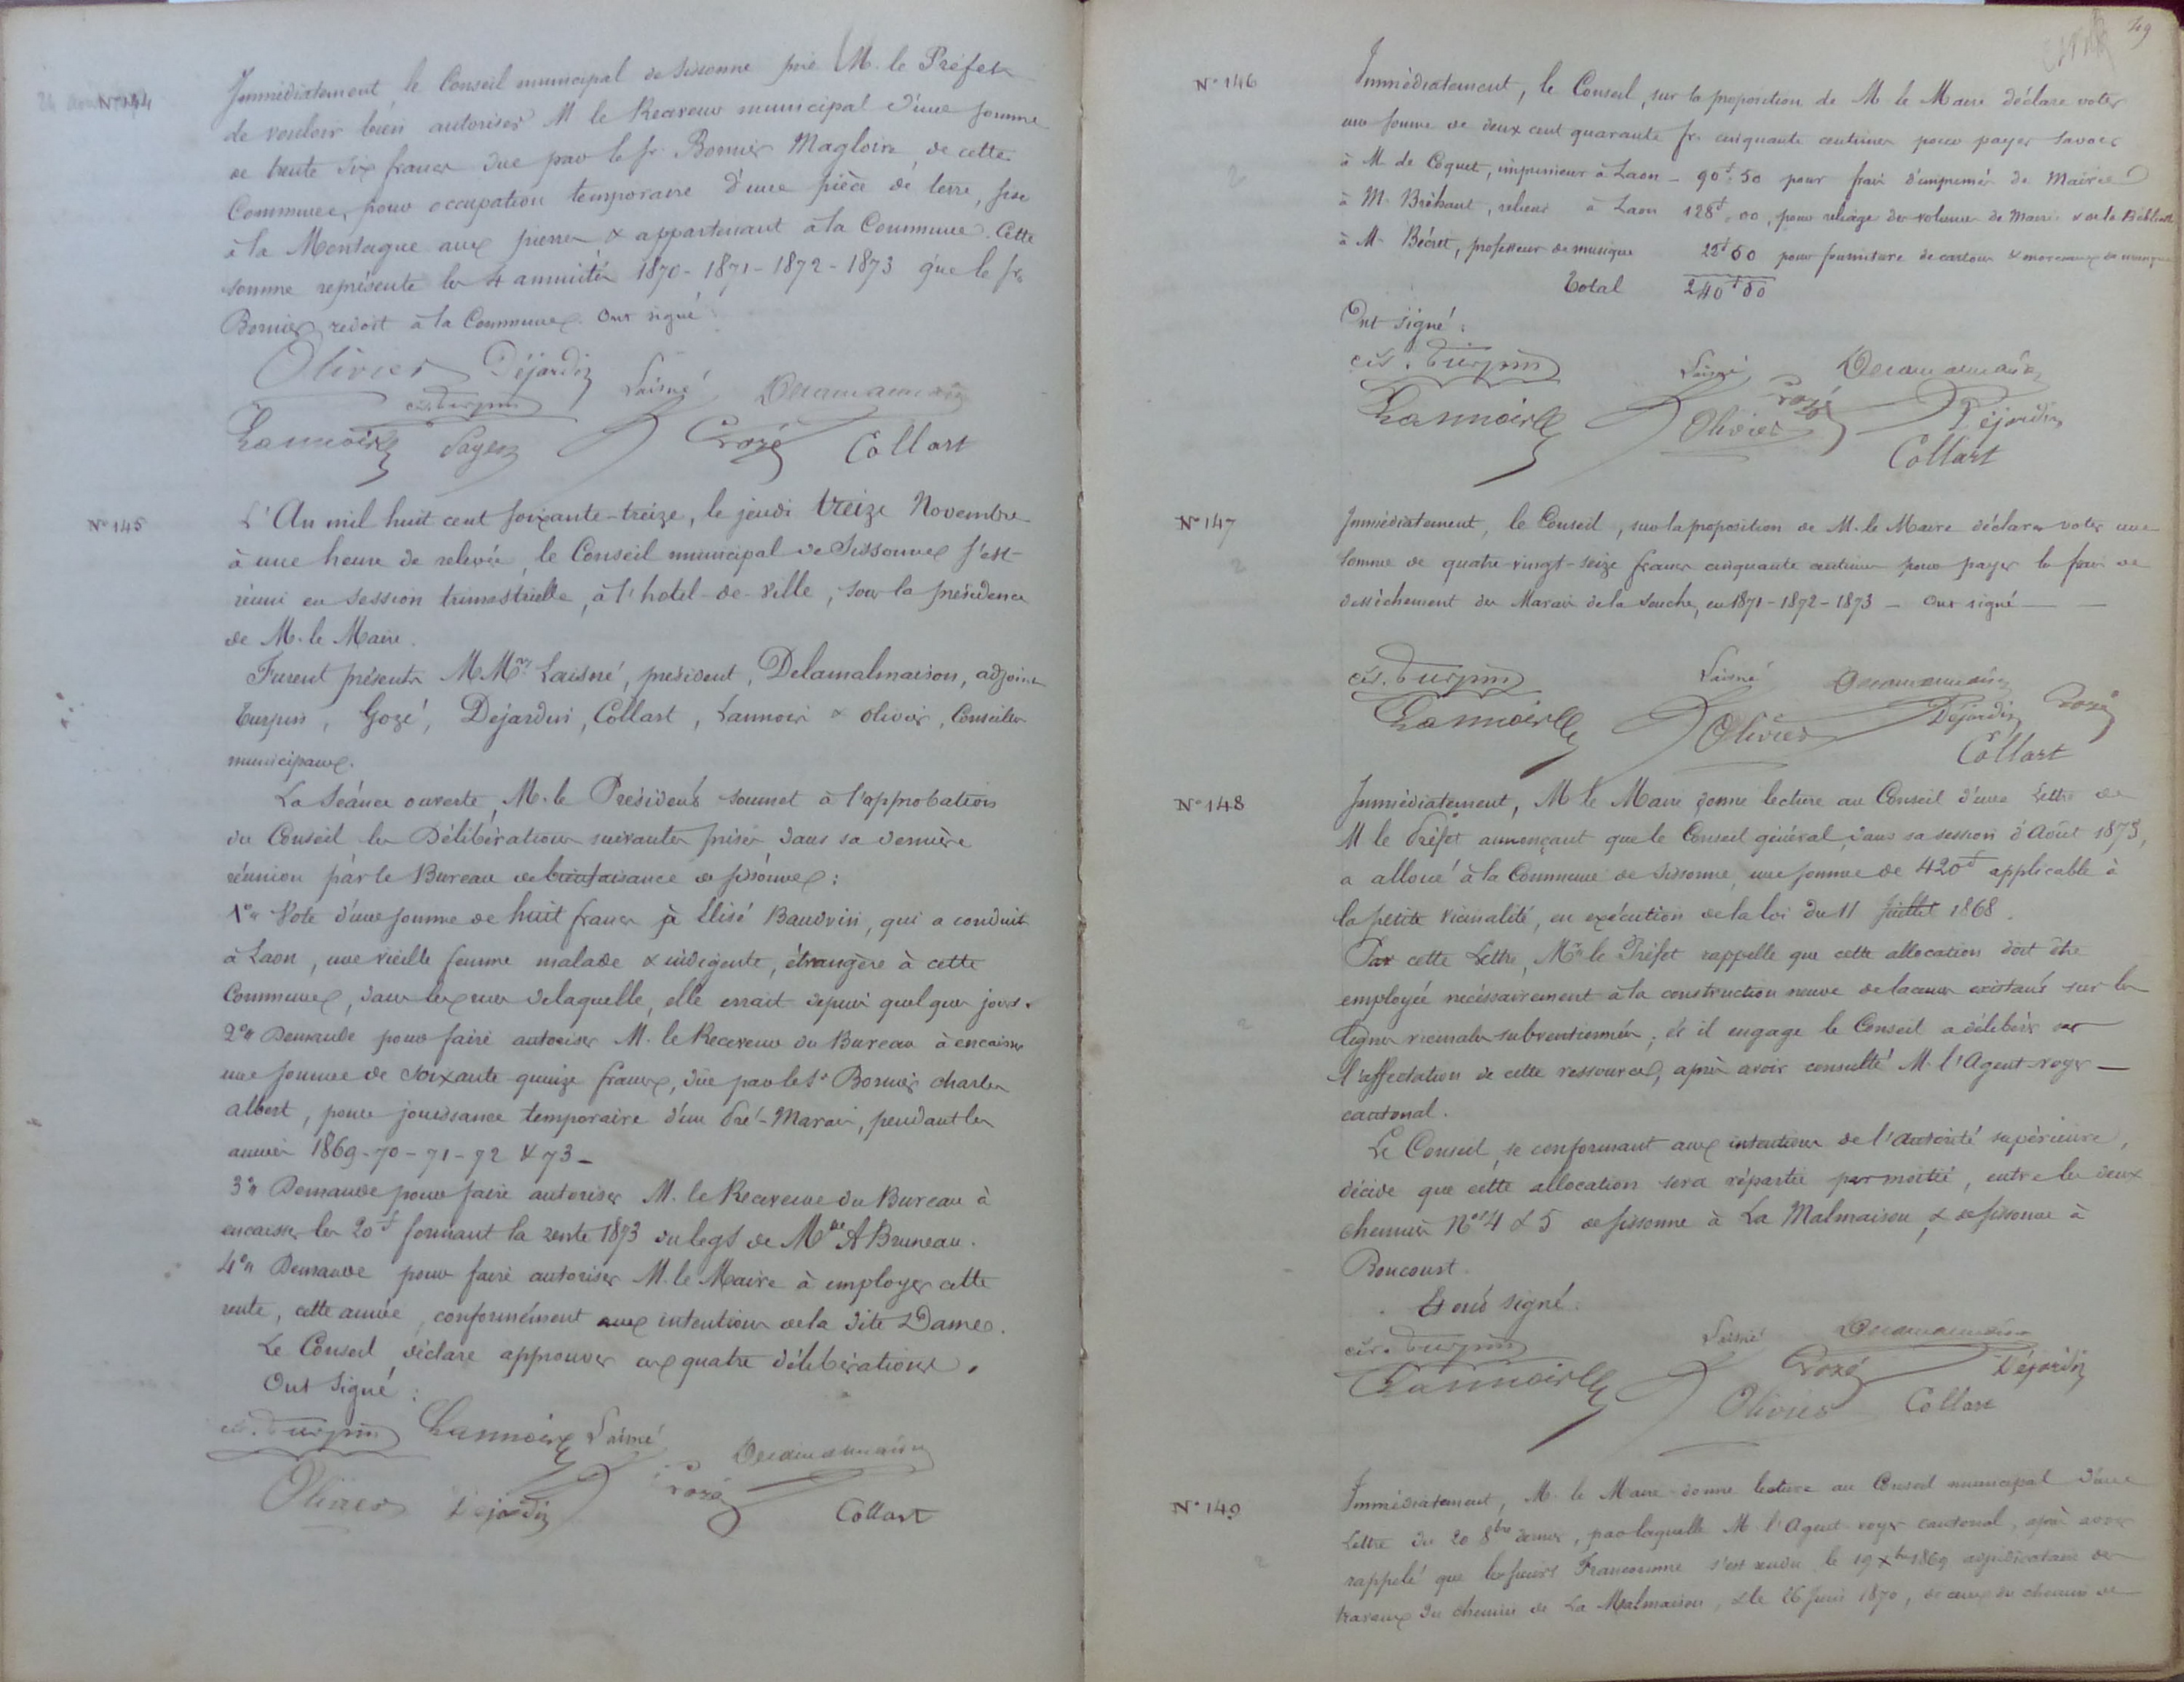 N° 144
Immédiatement le Conseil municipal de Sissonne prie M. le Préfet
de vouloir bien autoriser M le Receveur municipal d'une somme
de trente six francs due par le sr. Bonnier Magloire, de cette
Commune, pour occupation temporaire d'une pièce de terre, sise
à la Montagne aux pierres & appartenant à la Commune. Cette
somme représente les 4 annuités 1870-1871-1872-1873 que le sr
Bonnier, redoit à la Commune. Ont signé
Olivier Déjardin Laisné Delamalmaison
cis. Turpin
Lannois Payen Gozé Collart
N° 145
L'An mil huit cent soixante-treize, le jeudi treize Novembre
à une heure de relevée, le Conseil municipal de Sissonne s'est
réuni en session trimestrielle, à l'hotel-de-ville, sous la présidence
de M. le Maire.
Furent présents MMrs Laisné, président, Delamalmaison, adjoint
Turpin, Gozé, Dejardin, Collart, Lannois & Olivier, Conseillers
municipaux.
La Séance ouverte, M. le Président soumet à l'approbation
du Conseil les Délibérations suivantes prises dans sa dernière
réunion par le Bureau de bienfaisance de Sissonne :
1° Vote d'une somme de huit francs à Elisé Baudvin, qui a conduit
à Laon, une vieille femme malade & indigente, étrangère à cette
Commune, dans les rues de laquelle, elle errait depuis quelques jours.
2° Demande pour faire autoriser M. le Receveur du Bureau à encaisser
une somme de soixante-quinze francs, due par le Sr Bonnier Charles
albert, pour jouissance temporaire d'un Pré-Marais, pendant les
années 1869-70-71-72 & 73 -
3° Demande pour faire autoriser M. le Receveur du Bureau à
encaisser les 20f formant la rente 1873 du legs de Mme A Bruneau.
4° Demande pour faire autoriser M. le Maire à employer cette
rente, cette année, conformément aux intentions de la dite Dame.
Le Conseil, déclare approuver ces quatre délibérations.
Ont signé :
cis. Turpin Lannois Laisné Delamalmaison
Olivier Dejardin Gozé Collart
49
N° 146
Immédiatement, le Conseil, sur la proposition de M le Maire déclare voter
une somme de deux cent quarante fr. cinquante centimes pour payer savoir
à M. de Coquet, imprimeur à Laon - 90f.50 pour frais d'imprimés de Mairie
à M. Bréhaut, relieur à Laon 128f.00, pour reliage des volumes de Mairie & de la Biblioth
à M. Bécret, professeur de musique 22f50 pour fourniture de cartons & morceaux de musique
Total 240f50
Ont signé :
cis. Turpin Laisné Delamalmaison
Lannois Olivier Gozé Déjardin
Collart
N° 147
Immédiatement, le Conseil, sur la proposition de M. le Maire déclare voter une
somme de quatre-vingt-seize francs cinquante centimes pour payer les frais de
dessèchement des Marais de la Souche, en 1871-1872-1873 - Ont signé - -
cis. Turpin Laisné Delamalmaison
Lannois Olivier Déjardin Gozé
Collart
N° 148
Immédiatement, M le Maire donne lecture au Conseil d'une Lettre de
M le Préfet annonçant que le Conseil général, dans sa session d'Août 1873,
a alloué à la Commune de Sissonne, une somme de 420f applicable à
la petite vicinalité, en exécution de la loi du 11 Juillet 1868.
Par cette Lettre, Mr le Préfet rappelle que cette allocation doit être
employée nécessairement à la construction neuve de lacunes existant sur les
lignes vicinales subventionnées; et il engage le Conseil à délibérer sur
l'affectation de cette ressource, après avoir consulté M. l'Agent-voyer -
cantonal.
Le Conseil, se conformant aux intentions de l'Autorité supérieure,
décide que cette allocation sera répartie par moitié, entre les deux
chemins Nos 4 & 5 de Sissonne à La Malmaison, & de Sissonne à
Boncourt.
Et ont signé.
cis. Turpin Laisné Delamalmaison
Lannois Gozé Déjardin
Olivier Collart
N° 149
Immédiatement, M. le Maire donne lecture au Conseil municipal d'une
Lettre du 20 8bre dernier, par laquelle M. l'Agent voyer cantonal, après avoir
rappelé que le sieur Franconme s'est rendu le 19 Xbre 1869 adjudicataire des
travaux du chemin de La Malmaison, & le 26 Juin 1870, de ceux du chemin de